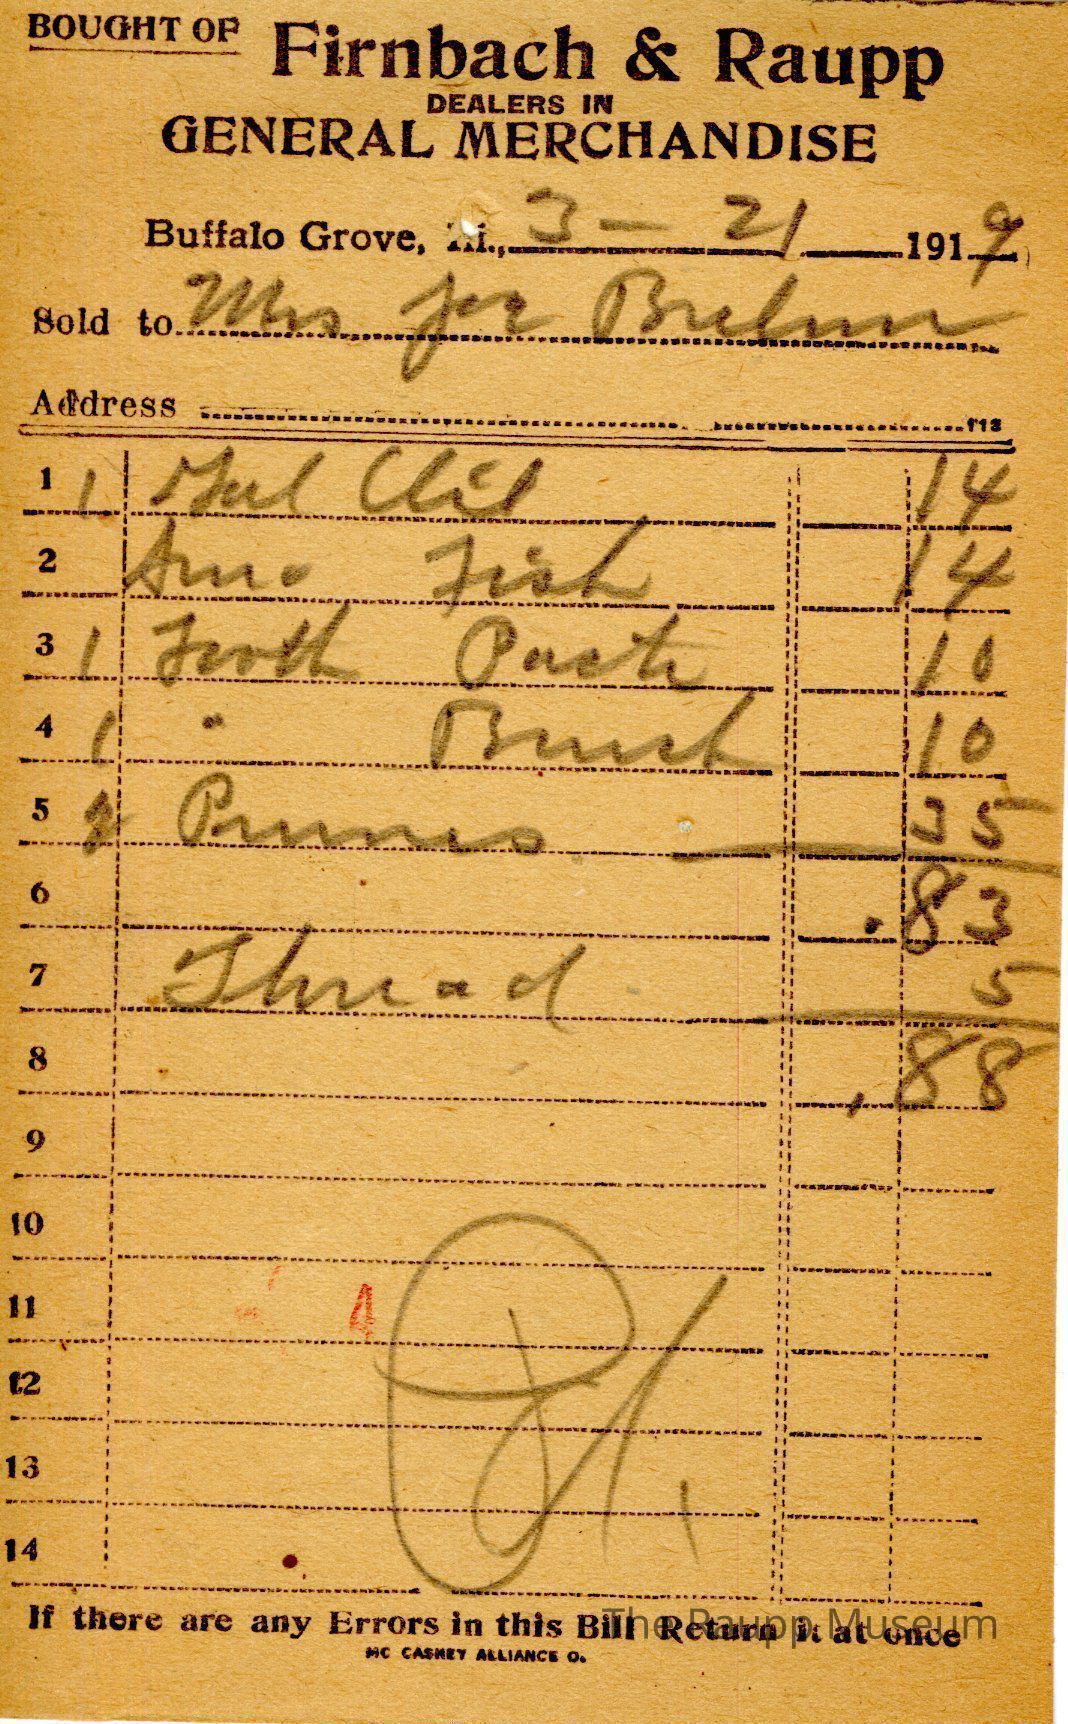 BOUGHT OF Firnbach & Raupp
DEALERS IN
GENERAL MERCHANDISE
Buffalo Grove, Ill., 3 - 21 1919
Sold to Mrs Brehm
Address
1 1 14
2 Fish 14
3 1 Tooth Paste 10
4 1 " Brush 10
5 2 Prunes 35
6 .83
7 Thread 5
8 .88
9
10
11
12
13
14
If there are any Errors in this Bill Return it at once
The Raupp Museum
MC CASKEY ALLIANCE O.